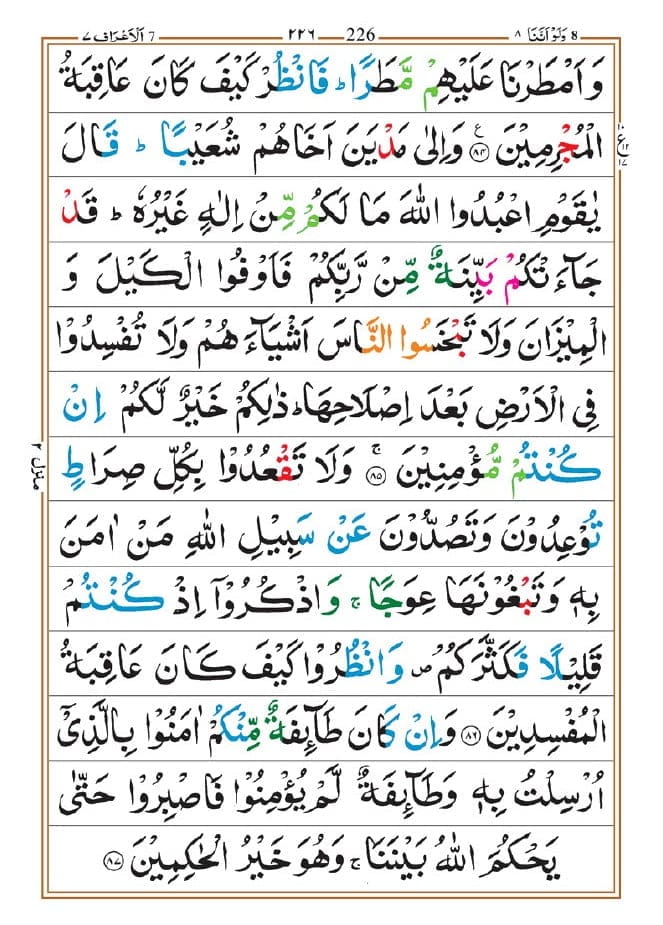 7 اَلْاَعْرَاف ٧ ٢٢٦ 226 8 وَلَوْ اَنَّنَا ٨
وَاَمْطَرْنَا عَلَيْهِمْ مَّطَرًا ؕ فَانْظُرْ كَيْفَ كَانَ عَاقِبَةُ
الْمُجْرِمِيْنَ ﴿٨٤﴾ ع وَاِلٰى مَدْيَنَ اَخَاهُمْ شُعَيْبًا ؕ قَالَ
يٰقَوْمِ اعْبُدُوا اللّٰهَ مَا لَكُمْ مِّنْ اِلٰهٍ غَيْرُهٗ ؕ قَدْ
جَآءَتْكُمْ بَيِّنَةٌ مِّنْ رَّبِّكُمْ فَاَوْفُوا الْكَيْلَ وَ
الْمِيْزَانَ وَلَا تَبْخَسُوا النَّاسَ اَشْيَآءَهُمْ وَلَا تُفْسِدُوْا
فِى الْاَرْضِ بَعْدَ اِصْلَاحِهَا ؕ ذٰلِكُمْ خَيْرٌ لَّكُمْ اِنْ
كُنْتُمْ مُّؤْمِنِيْنَ ﴿٨٥﴾ ۚ وَلَا تَقْعُدُوْا بِكُلِّ صِرَاطٍ
منزل ٢
تُوْعِدُوْنَ وَتَصُدُّوْنَ عَنْ سَبِيْلِ اللّٰهِ مَنْ اٰمَنَ
بِهٖ وَتَبْغُوْنَهَا عِوَجًا ۚ وَاذْكُرُوْۤا اِذْ كُنْتُمْ
قَلِيْلًا فَكَثَّرَكُمْ ۪ وَانْظُرُوْا كَيْفَ كَانَ عَاقِبَةُ
الْمُفْسِدِيْنَ ﴿٨٦﴾ وَاِنْ كَانَ طَآئِفَةٌ مِّنْكُمْ اٰمَنُوْا بِالَّذِىْۤ
اُرْسِلْتُ بِهٖ وَطَآئِفَةٌ لَّمْ يُؤْمِنُوْا فَاصْبِرُوْا حَتّٰى
يَحْكُمَ اللّٰهُ بَيْنَنَا ۚ وَهُوَ خَيْرُ الْحٰكِمِيْنَ ﴿٨٧﴾